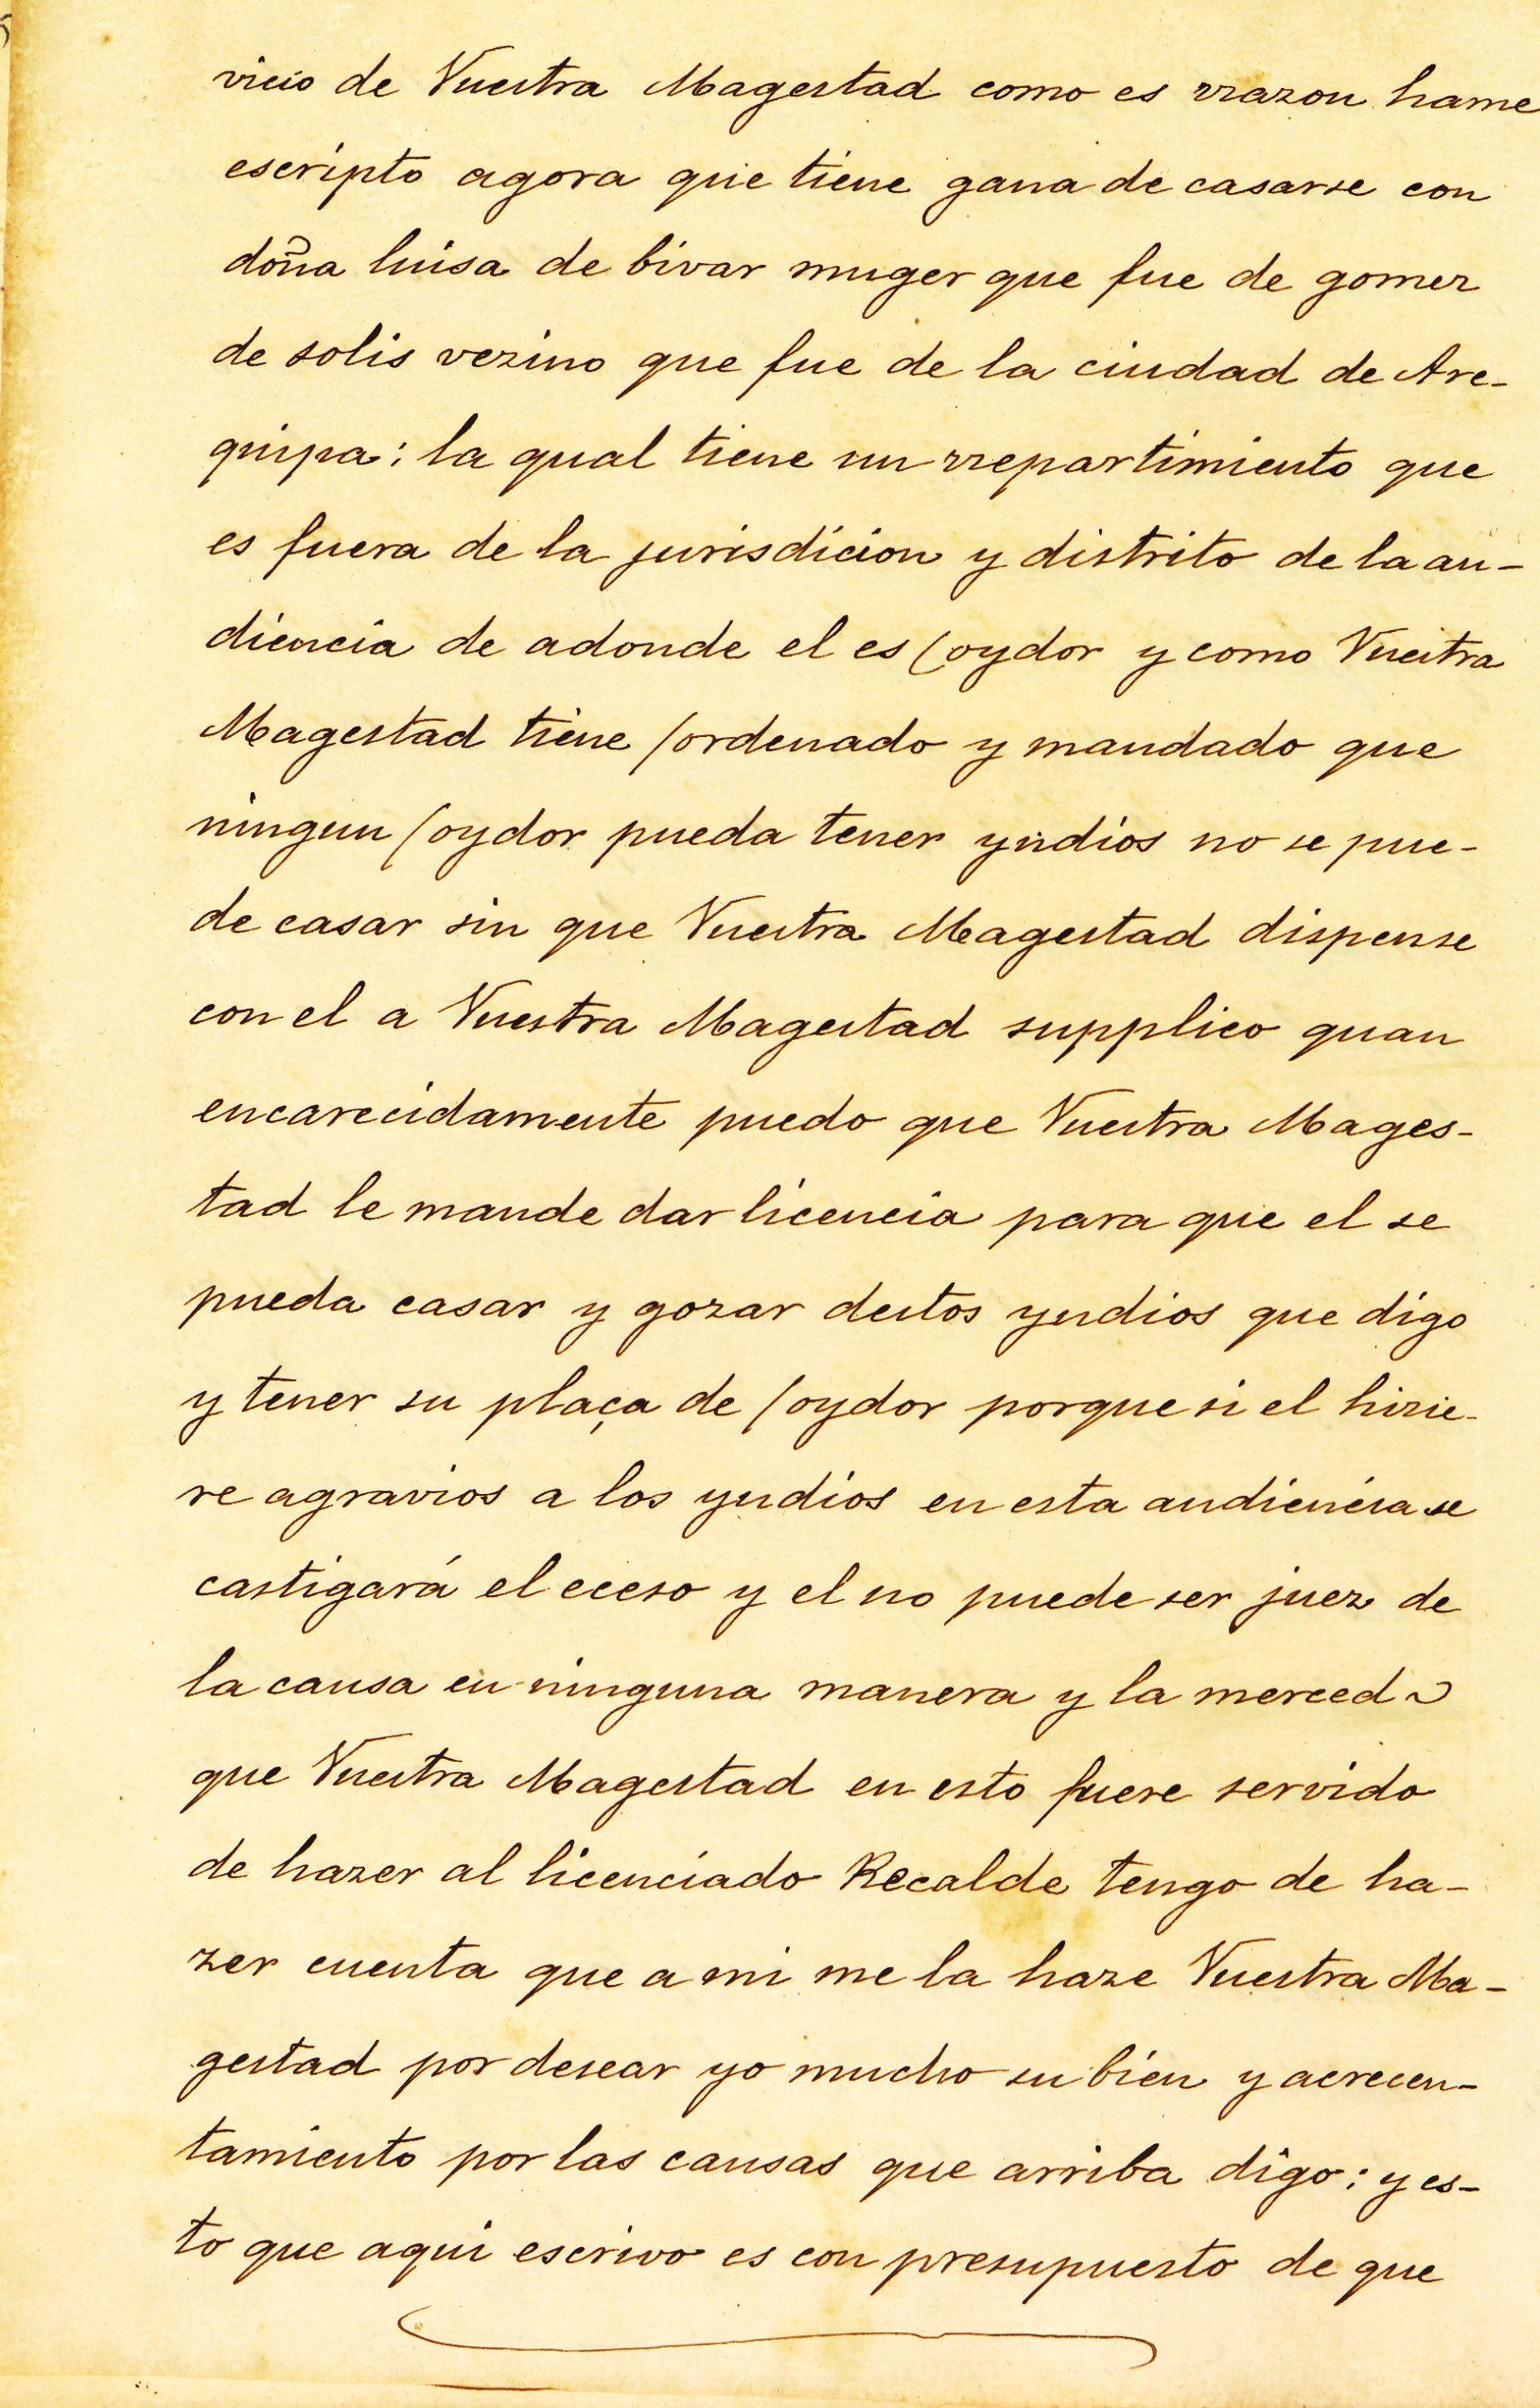 vicio de Vuestra Magestad como es rrazon hame
escripto agora que tiene gana de casarse con
doña luisa de bivar muger que fue de gomez
de solis vezino que fue de la ciudad de Are-
quipa: la qual tiene un rrepartimiento que
es fuera de la jurisdicion y distrito de la au-
diencia de adonde el es /oydor y como Vuestra
Magestad tiene /ordenado y mandado que
ningun /oydor pueda tener yndios no se pue-
de casar sin que Vuestra Magestad dispense
con el a Vuestra Magestad supplico quan
encarecidamente puedo que Vuestra Mages-
tad le mande dar licencia para que el se
pueda casar y gozar destos yndios que digo
y tener su plaça de /oydor porque si el hizie-
re agravios a los yndios en esta audiencia se
castigará el eceso y el no puede ser juez de
la causa en ninguna manera y la merced
que Vuestra Magestad en esto fuere servido
de hazer al licenciado Recalde tengo de ha-
zer cuenta que a mi me la haze Vuestra Ma-
gestad por desear yo mucho su bien y acrecen-
tamiento por las causas que arriba digo: y es-
to que aqui escrivo es con presupuesto de que